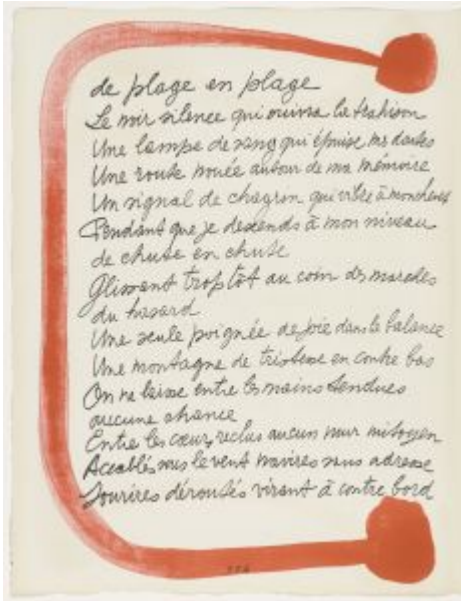 de plage en plage
Le noir silence qui ouvrira la trahison
Une lampe de sang qui épuise mes doutes
Une route nouée autour de ma mémoire
Un signal de chagrin qui vibre à mon chevet
Pendant que je descends à mon niveau
de chute en chute
Glissant trop tôt au coin des marelles
du hasard
Une seule poignée de joie dans la balance
Une montagne de tristesse en contre bas
On ne laisse entre les mains tendues
aucune chance
Entre les cœurs reclus aucun mur mitoyen
Accablés sous le vent navires sans adresse
Sourires déroutés virant à contre bord